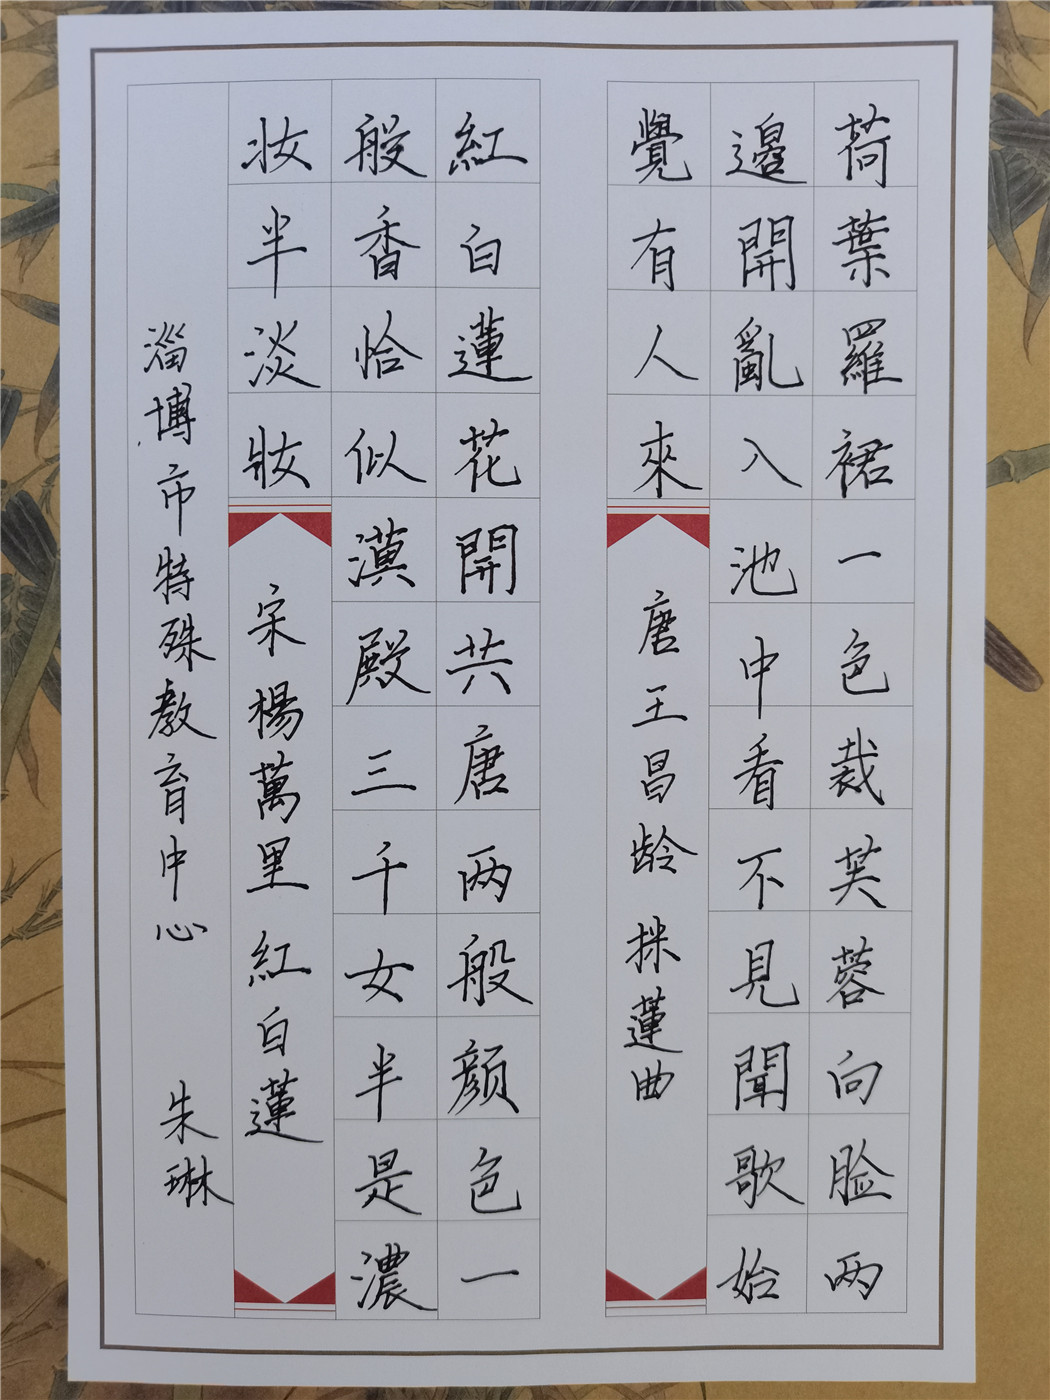 荷葉羅裙一色裁芙蓉向脸两
邊開亂入池中看不見聞歌始
覺有人來
唐王昌龄 採蓮曲
紅白蓮花開共唐两般颜色一
般香恰似漢殿三千女半是濃
妝半淡妝
宋楊萬里 紅白蓮
淄博市特殊教育中心 朱琳